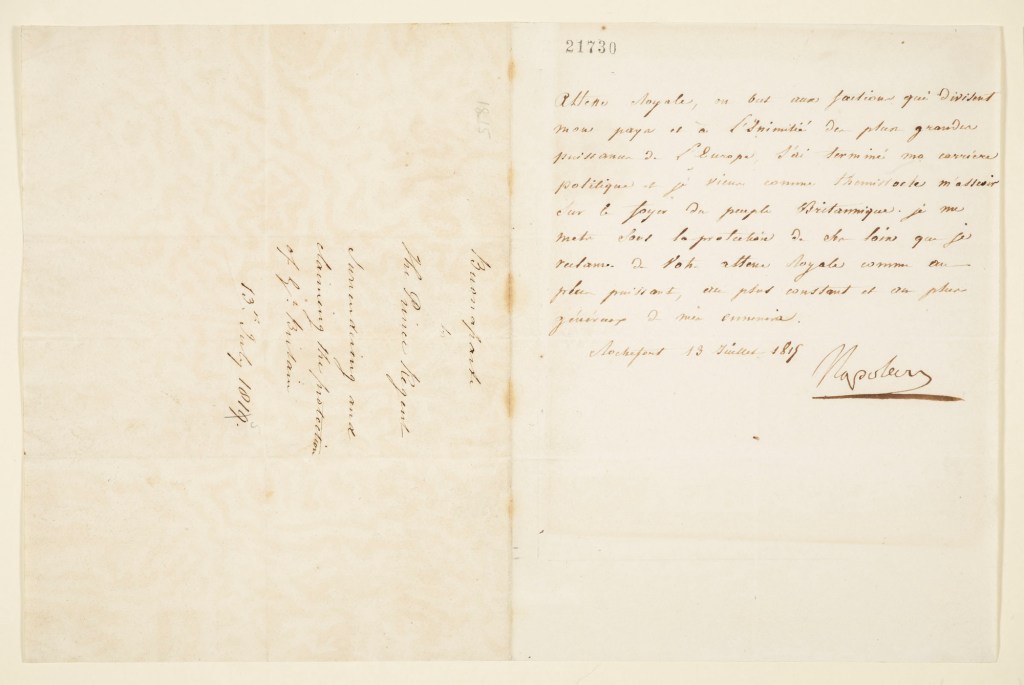 Buonaparte
to
The Prince Regent
Surrendering and
claiming the protection
of Gt. Britain
13. July 1815.
1815
21730
Altesse Royale, en but aux factions qui divisent
mon pays et à l'Inimitié des plus grandes
puissances de l'Europe, J'ai terminé ma carrière
politique et je viens comme themistocle m'asseoir
sur le foyer du peuple Britannique. je me
mets sous la protection de ses loix que je
reclame de Votre altesse Royale comme au
plus puissant, au plus constant et au plus
généreux de mes ennemies.
Rochefort 13 Juillet 1815
Napoleon